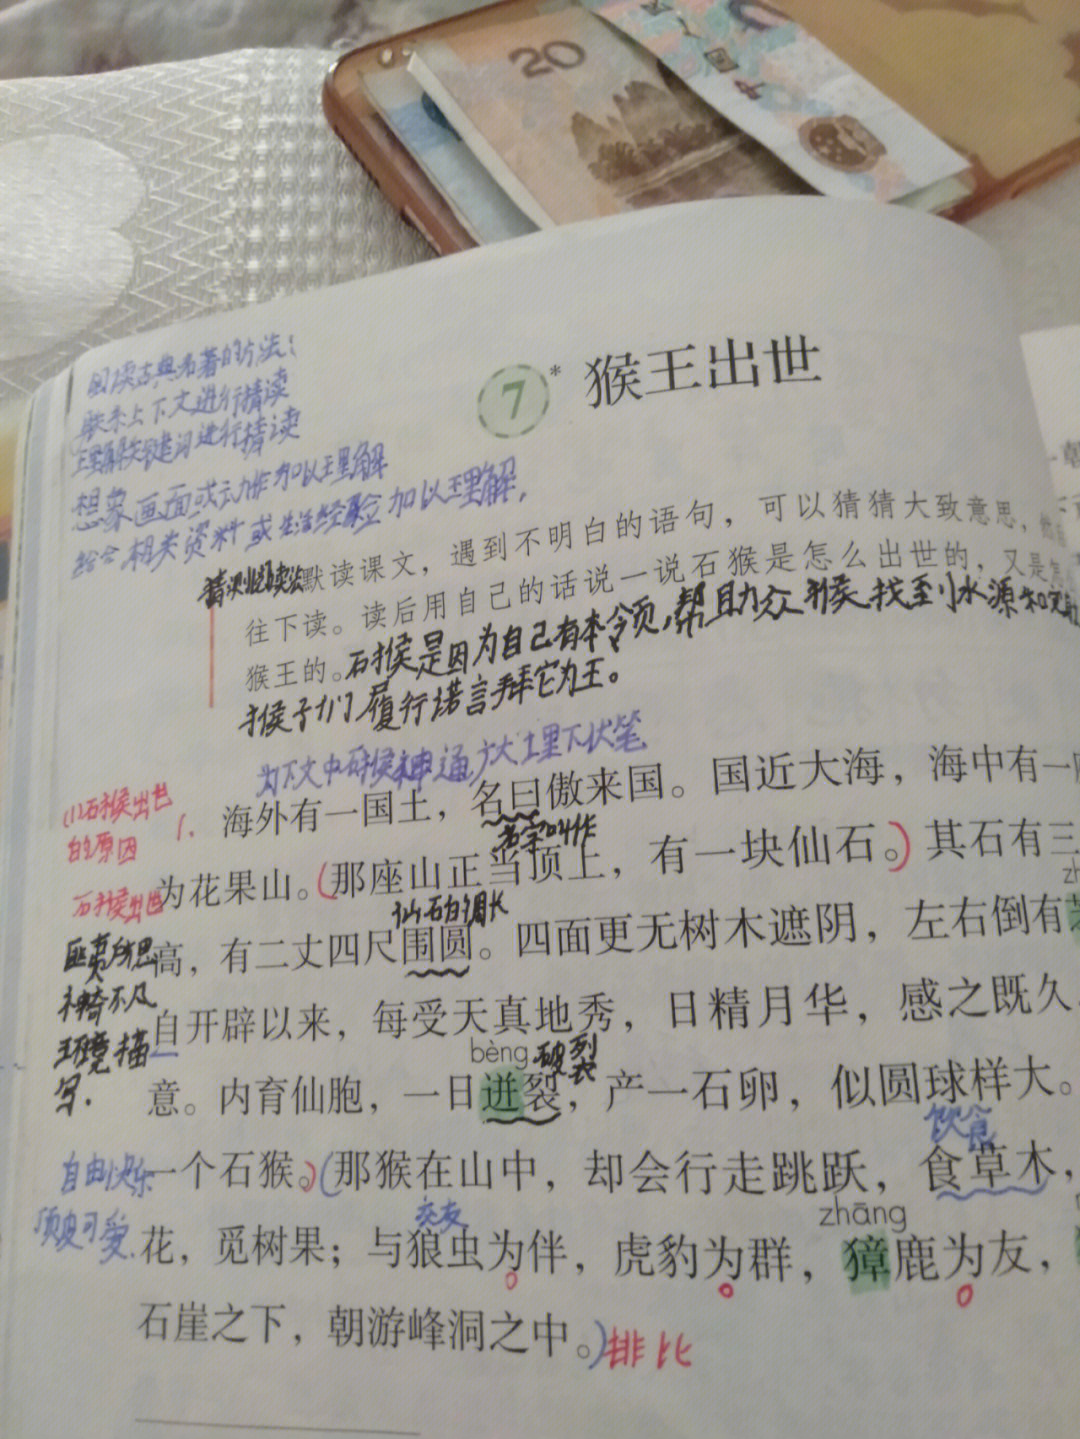 20
中
国
阅读古典名著的方法：
联系上下文进行精读
理解关键词进行精读
想象画面或动作加以理解
结合相关资料或生活经验加以理解，
7* 猴王出世
猜测读
默读课文，遇到不明白的语句，可以猜猜大致意思，
往下读。读后用自己的话说一说石猴是怎么出世的，又是怎
猴王的。石猴是因为自己有本领，帮助众猴找到水源和
猴子们履行诺言拜它为王。
为下文中石猴神通广大埋下伏笔
(1)石猴出世
的原因
1. 海外有一国土，名曰傲来国。国近大海，海中有一
名字叫作
为花果山。(那座山正当顶上，有一块仙石。)其石有三
石猴出世
仙石的周长
高，有二丈四尺围圆。四面更无树木遮阴，左右倒有
匪夷所思
神奇不凡
环境描
写.
自开辟以来，每受天真地秀，日精月华，感之既久
bèng 破裂
意。内育仙胞，一日迸裂，产一石卵，似圆球样大。
饮食
自由快乐
一个石猴。)(那猴在山中，却会行走跳跃，食草木，
顽皮可爱.
交友
zhāng
花，觅树果；与狼虫为伴，虎豹为群，獐鹿为友，
石崖之下，朝游峰洞之中。)排比